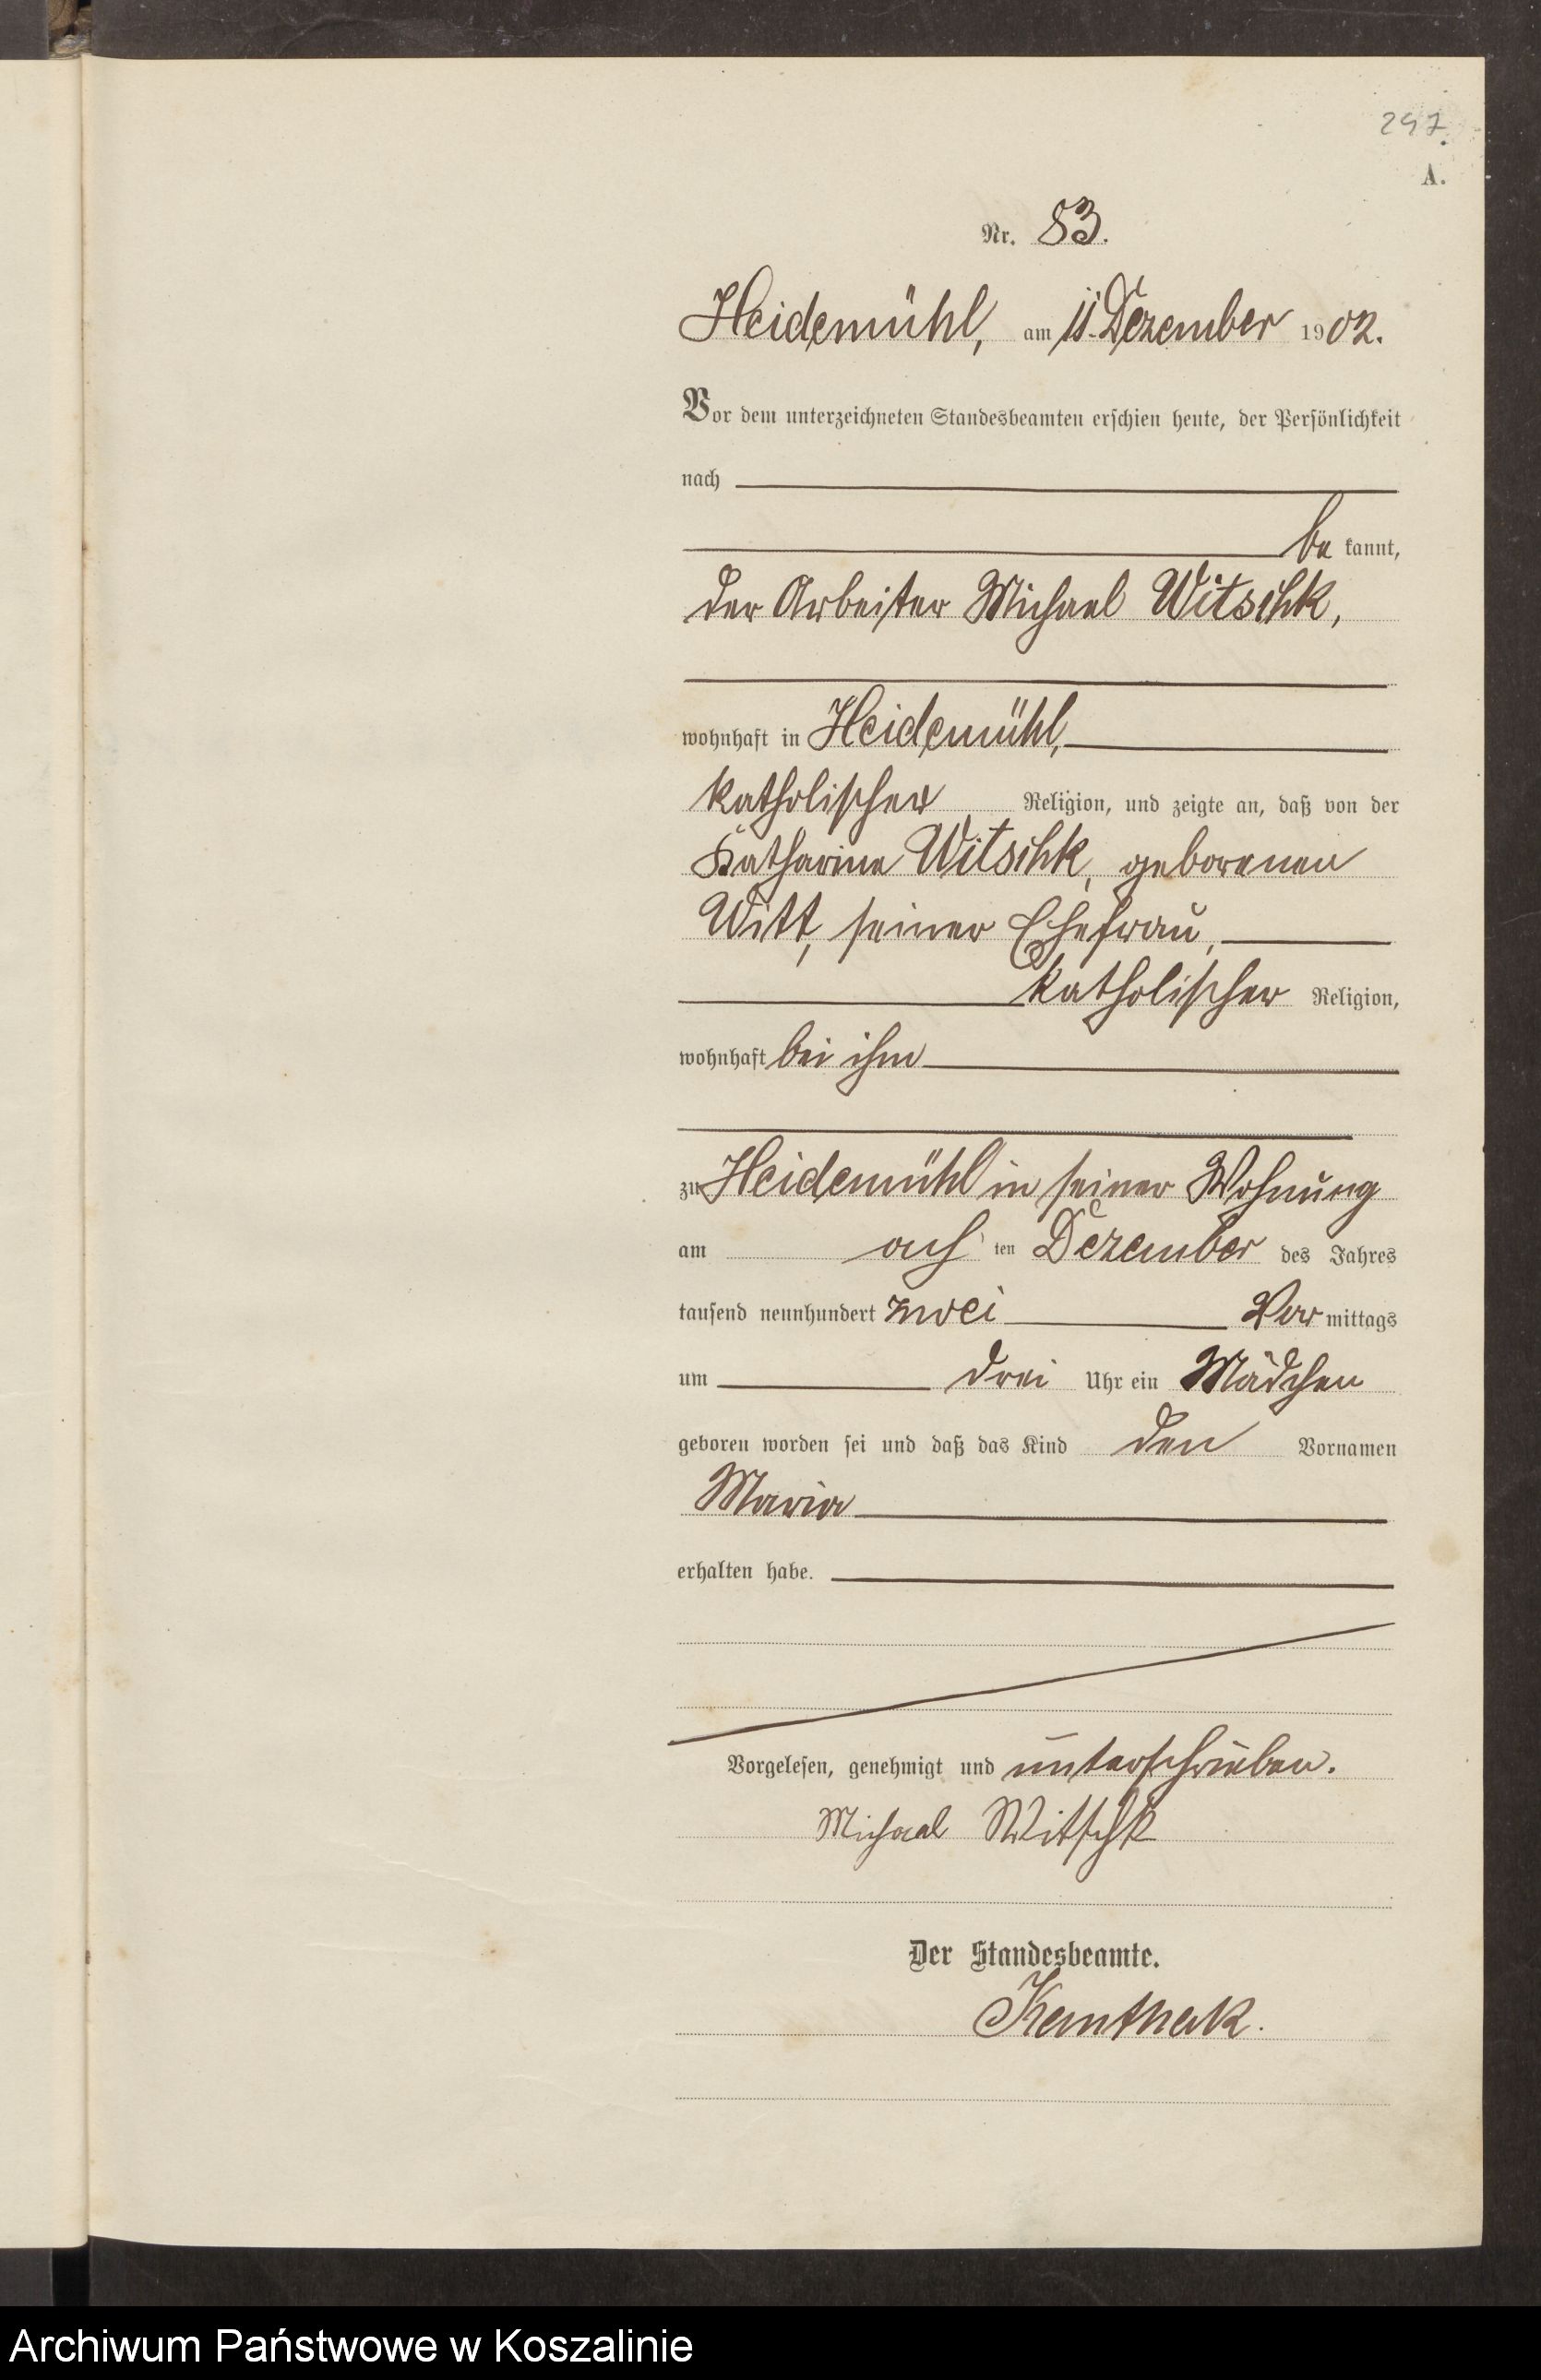 297.
A.
Nr. 83.
Heidemühl, am 11. Dezember 1902.
Vor dem unterzeichneten Standesbeamten erschien heute, der Persönlichkeit
nach
be kannt,
der Arbeiter Michael Witschk,
wohnhaft in Heidemühl,
katholischer Religion, und zeigte an, daß von der
Katharina Witschk, geborenen
Witt, seiner Ehefrau,
katholischer Religion,
wohnhaft bei ihm
zu Heidemühl in seiner Wohnung
am acht ten Dezember des Jahres
tausend neunhundert zwei Vor mittags
um drei Uhr ein Mädchen
geboren worden sei und daß das Kind den Vornamen
Maria
erhalten habe.
Vorgelesen, genehmigt und unterschrieben.
Michael Witschk
Der Standesbeamte.
Archiwum Państwowe w Koszalinie